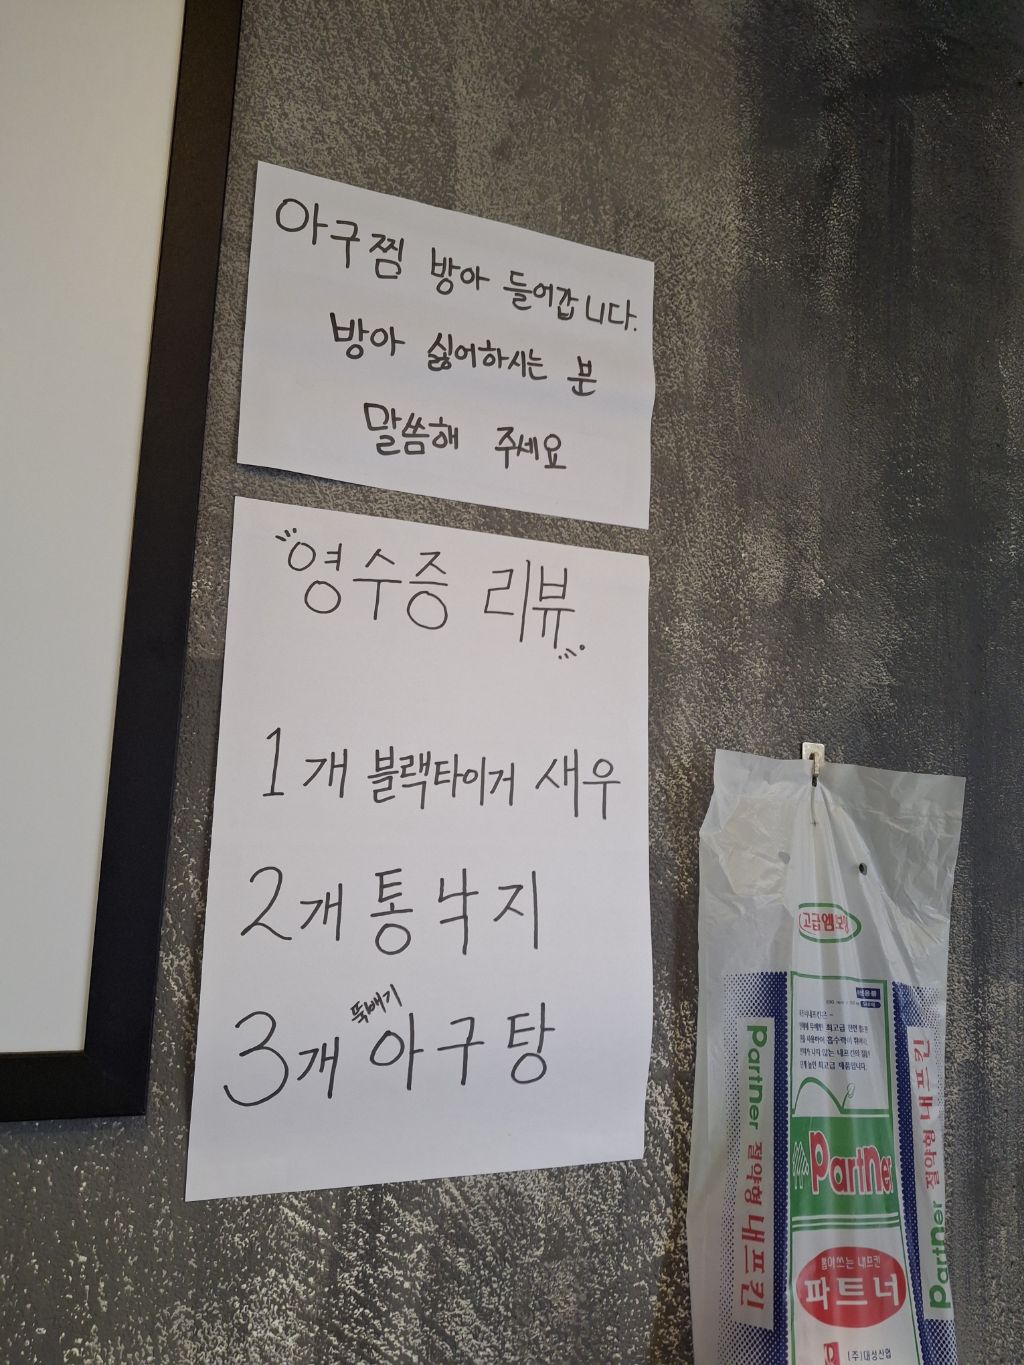 아구찜 방아 들어갑니다.
방아 싫어하시는 분
말씀해 주세요
영수증 리뷰
1개 블랙타이거 새우
2개 통낙지
3개 뚝배기 아구탕
고급엠보싱
Partner 절약형 내프킨
Partner
뽑아쓰는 내프킨
파트너
(주)대성산업
Partner 절약형 내프킨